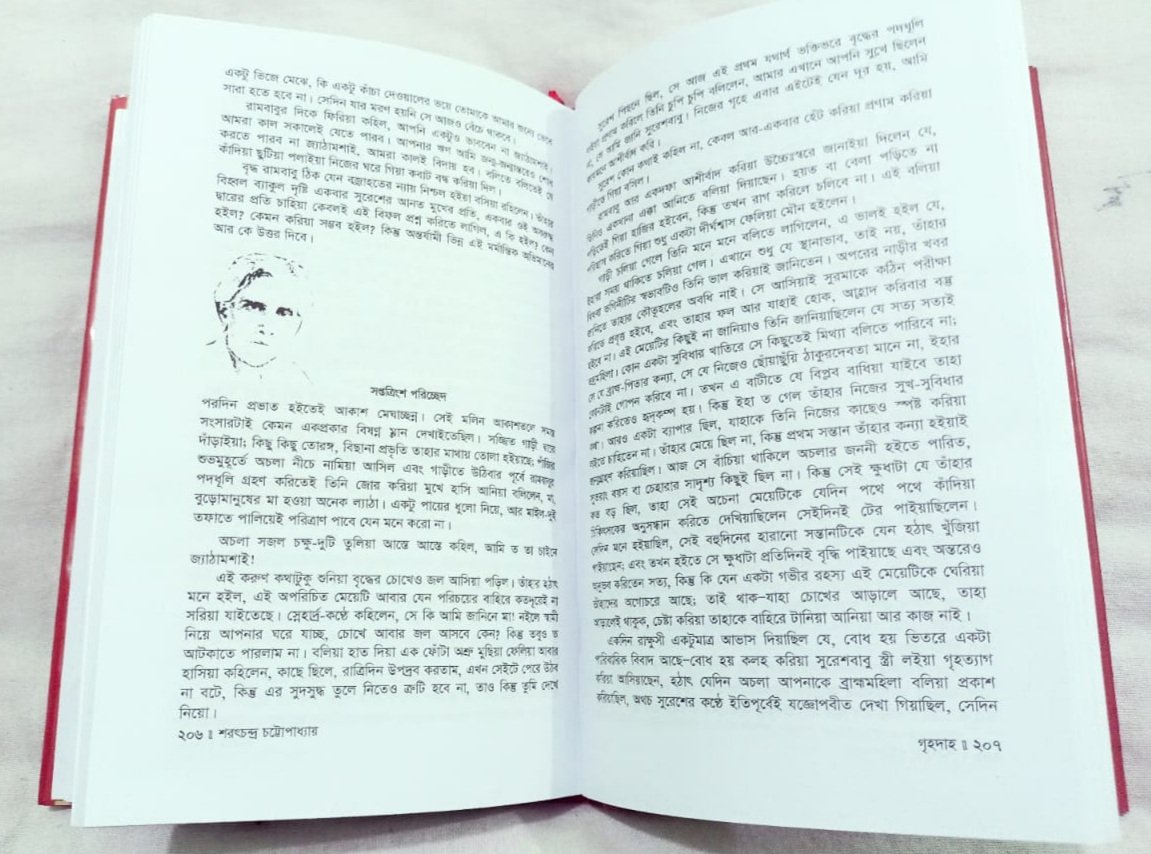 একটু ভিজে মেঝে, কি একটু কাঁচা দেওয়ালের ভয়ে তোমাকে আমার জন্যে ভেবে
সারা হতে হবে না। সেদিন যার মরণ হয়নি সে আজও বেঁচে থাকবে।
রামবাবুর দিকে ফিরিয়া কহিল, আপনি একটুও ভাববেন না জ্যাঠামশাই,
আমরা কাল সকালেই যেতে পারব। আপনার ঋণ আমি জন্ম-জন্মান্তরেও শোধ
করতে পারব না জ্যাঠামশাই, আমরা কালই বিদায় হব। বলিতে বলিতেই সে
কাঁদিয়া ছুটিয়া পলাইয়া নিজের ঘরে গিয়া কবাট বন্ধ করিয়া দিল।
বৃদ্ধ রামবাবু ঠিক যেন বজ্রাহতের ন্যায় নিশ্চল হইয়া বসিয়া রহিলেন। তাঁহার
বিহ্বল ব্যাকুল দৃষ্টি একবার সুরেশের আনত মুখের প্রতি, একবার ওই অবরুদ্ধ
দ্বারের প্রতি চাহিয়া কেবলই এই বিফল প্রশ্ন করিতে লাগিল, এ কি হইল? কেন
হইল? কেমন করিয়া সম্ভব হইল? কিন্তু অন্তর্যামী ভিন্ন এই মর্মান্তিক অভিমানের
আর কে উত্তর দিবে।
সপ্তত্রিংশ পরিচ্ছেদ
পরদিন প্রভাত হইতেই আকাশ মেঘাচ্ছন্ন। সেই মলিন আকাশতলে সমস্ত
সংসারটাই কেমন একপ্রকার বিষণ্ন ম্লান দেখাইতেছিল। সজ্জিত গাড়ী দ্বারে
দাঁড়াইয়া; কিছু কিছু তোরঙ্গ, বিছানা প্রভৃতি তাহার মাথায় তোলা হইয়াছে; পাঁজির
শুভমুহূর্তে অচলা নীচে নামিয়া আসিল এবং গাড়ীতে উঠিবার পূর্বে রামবাবুর
পদধূলি গ্রহণ করিতেই তিনি জোর করিয়া মুখে হাসি আনিয়া বলিলেন, মা,
বুড়োমানুষের মা হওয়া অনেক ল্যাঠা। একটু পায়ের ধুলো নিয়ে, আর মাইল-দুই
তফাতে পালিয়েই পরিত্রাণ পাবে যেন মনে করো না।
অচলা সজল চক্ষু-দুটি তুলিয়া আস্তে আস্তে কহিল, আমি ত তা চাইনে
জ্যাঠামশাই!
এই করুণ কথাটুকু শুনিয়া বৃদ্ধের চোখেও জল আসিয়া পড়িল। তাঁহার হঠাৎ
মনে হইল, এই অপরিচিত মেয়েটি আবার যেন পরিচয়ের বাহিরে কতদূরেই না
সরিয়া যাইতেছে। স্নেহার্দ্র-কণ্ঠে কহিলেন, সে কি আমি জানিনে মা! নইলে স্বামী
নিয়ে আপনার ঘরে যাচ্ছ, চোখে আবার জল আসবে কেন? কিন্তু তবুও ত
আটকাতে পারলাম না। বলিয়া হাত দিয়া এক ফোঁটা অশ্রু মুছিয়া ফেলিয়া আবার
হাসিয়া কহিলেন, কাছে ছিলে, রাত্রিদিন উপদ্রব করতাম, এখন সেইটে পেরে উঠব
না বটে, কিন্তু এর সুদসুদ্ধ তুলে নিতেও ত্রুটি হবে না, তাও কিন্তু তুমি দেখে
নিয়ো।
২০৬ ॥ শরৎচন্দ্র চট্টোপাধ্যায়
সুরেশ পিছনে ছিল, সে আজ এই প্রথম যথার্থ ভক্তিভরে বৃদ্ধের পদধূলি
প্রণাম করিলে তিনি চুপি চুপি বলিলেন, আমার এখানে আপনি সুখে ছিলেন
না, সে আমি জানি সুরেশবাবু। নিজের গৃহে এবার এইটেই যেন দূর হয়, আমি
আশীর্বাদ করি।
সুরেশ কোন কথাই কহিল না, কেবল আর-একবার হেঁট করিয়া প্রণাম করিয়া
গাড়ীতে গিয়া বসিল।
রামবাবু আর একদফা আশীর্বাদ করিয়া উচ্চৈঃস্বরে জানাইয়া দিলেন যে,
তিনিও একখানা এক্কা আনিতে বলিয়া দিয়াছেন। হয়ত বা বেলা পড়িতে না
পড়িতেই গিয়া হাজির হইবেন, কিন্তু তখন রাগ করিলে চলিবে না। এই বলিয়া
পরিহাস করিতে গিয়া শুধু একটা দীর্ঘশ্বাস ফেলিয়া মৌন হইলেন।
গাড়ী চলিয়া গেলে তিনি মনে মনে বলিতে লাগিলেন, এ ভালই হইল যে,
ইহারা সময় থাকিতে চলিয়া গেল। এখানে শুধু যে স্থানাভাব, তাই নয়, তাঁহার
বিধবা ভগিনীটির স্বভাবটিও তিনি ভাল করিয়াই জানিতেন। অপরের নাড়ীর খবর
জানিতে তাহার কৌতূহলের অবধি নাই। সে আসিয়াই সুরমাকে কঠিন পরীক্ষা
করিতে প্রবৃত্ত হইবে, এবং তাহার ফল আর যাহাই হোক, আহ্লাদ করিবার বস্তু
হইবে না। এই মেয়েটির কিছুই না জানিয়াও তিনি জানিয়াছিলেন যে সত্য সত্যই
ভদ্রমহিলা। কোন একটা সুবিধার খাতিরে সে কিছুতেই মিথ্যা বলিতে পারিবে না;
সে যে ব্রাহ্ম-পিতার কন্যা, সে যে নিজেও ছোঁয়াছুঁয়ি ঠাকুরদেবতা মানে না, ইহার
কোনটাই গোপন করিবে না। তখন এ বাটীতে যে বিপ্লব বাধিয়া যাইবে তাহা
কল্পনা করিতেও হৃদ্‌কম্প হয়। কিন্তু ইহা ত গেল তাঁহার নিজের সুখ-সুবিধার
কথা। আরও একটা ব্যাপার ছিল, যাহাকে তিনি নিজের কাছেও স্পষ্ট করিয়া
লইতে চাহিতেন না। তাঁহার মেয়ে ছিল না, কিন্তু প্রথম সন্তান তাঁহার কন্যা হইয়াই
জন্মগ্রহণ করিয়াছিল। আজ সে বাঁচিয়া থাকিলে অচলার জননী হইতে পারিত,
সুতরাং বয়স বা চেহারার সাদৃশ্য কিছুই ছিল না। কিন্তু সেই ক্ষুধাটা যে তাঁহার
কত বড় ছিল, তাহা সেই অচেনা মেয়েটিকে যেদিন পথে পথে কাঁদিয়া
চিকিৎসকের অনুসন্ধান করিতে দেখিয়াছিলেন সেইদিনই টের পাইয়াছিলেন।
সেদিন মনে হইয়াছিল, সেই বহুদিনের হারানো সন্তানটিকে যেন হঠাৎ খুঁজিয়া
পাইয়াছেন; এবং তখন হইতে সে ক্ষুধাটা প্রতিদিনই বৃদ্ধি পাইয়াছে এবং অন্তরেও
অনুভব করিতেন সত্য, কিন্তু কি যেন একটা গভীর রহস্য এই মেয়েটিকে ঘেরিয়া
তাঁহাদের অগোচরে আছে; তাই থাক–যাহা চোখের আড়ালে আছে, তাহা
আড়ালেই থাকুক, চেষ্টা করিয়া তাহাকে বাহিরে টানিয়া আনিয়া আর কাজ নাই।
একদিন রাক্ষুসী একটুমাত্র আভাস দিয়াছিল যে, বোধ হয় ভিতরে একটা
পারিবারিক বিবাদ আছে–বোধ হয় কলহ করিয়া সুরেশবাবু স্ত্রী লইয়া গৃহত্যাগ
করিয়া আসিয়াছেন, হঠাৎ যেদিন অচলা আপনাকে ব্রাহ্মমহিলা বলিয়া প্রকাশ
করিয়াছিল, অথচ সুরেশের কণ্ঠে ইতিপূর্বেই যজ্ঞোপবীত দেখা গিয়াছিল, সেদিন
গৃহদাহ ॥ ২০৭